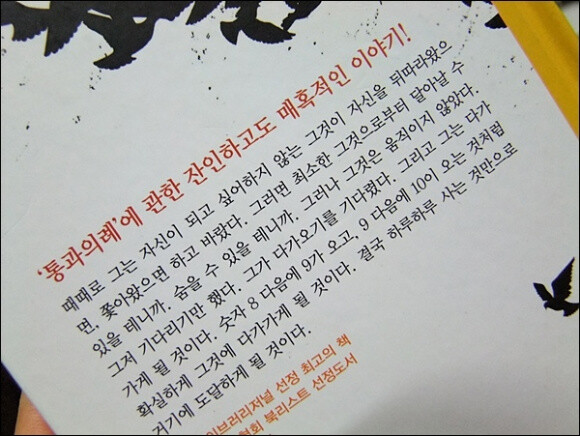 '통과의례'에 관한 잔인하고도 매혹적인 이야기!
때때로 그는 자신이 되고 싶어하지 않는 그것이 자신을 뒤따라왔으
면, 쫓아왔으면 하고 바랐다. 그러면 최소한 그것으로부터 달아날 수
있을 테니까. 숨을 수 있을 테니까. 그러나 그것은 움직이지 않았다.
그저 기다리기만 했다. 그가 다가오기를 기다렸다. 그리고 그는 다가
가게 될 것이다. 숫자 8 다음에 9가 오고, 9 다음에 10이 오는 것처럼
확실하게 그것에 다가가게 될 것이다. 결국 하루하루 사는 것만으로
거기에 도달하게 될 것이다.
이브러리저널 선정 최고의 책
협회 북리스트 선정도서